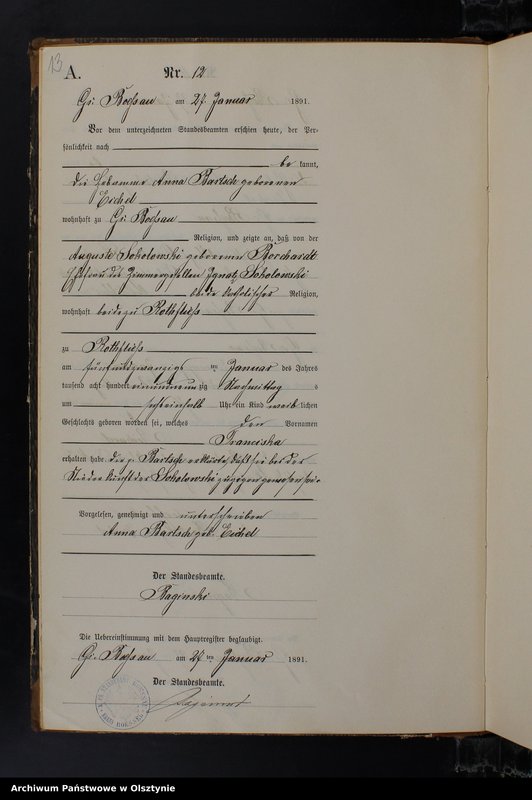 13
A.
Nr. 12
Gr. Bößau am 27. Januar 1891.
Vor dem unterzeichneten Standesbeamten erschien heute, der Per-
sönlichkeit nach
be kannt,
die Hebamme Anna Bartsch geborenen
Eichel
wohnhaft zu Gr. Bößau
Religion, und zeigte an, daß von der
Auguste Sokolowski geborenen Borchardt
Ehefrau des Zimmergesellen Ignatz Sokolowski
beide katholischer Religion,
wohnhaft beide zu Rothfließ
zu Rothfließ
am fünfundzwanzigs ten Januar des Jahres
tausend acht hundert einundneun zig Nachmittag s
um Uhr ein Kind weib lichen
Geschlechts geboren worden sei, welches den Vornamen
Franciska
erhalten habe. die p. Bartsch erklärte, daß sie bei der
Niederkunft der Sokolowski zugegen gewesen sei.
Vorgelesen, genehmigt und unterschrieben
Anna Bartsch geb. Eichel
Der Standesbeamte.
Baginski
Die Uebereinstimmung mit dem Hauptregister beglaubigt.
Gr. Bößau am 27 ten Januar 1891.
Der Standesbeamte.
Archiwum Państwowe w Olsztynie